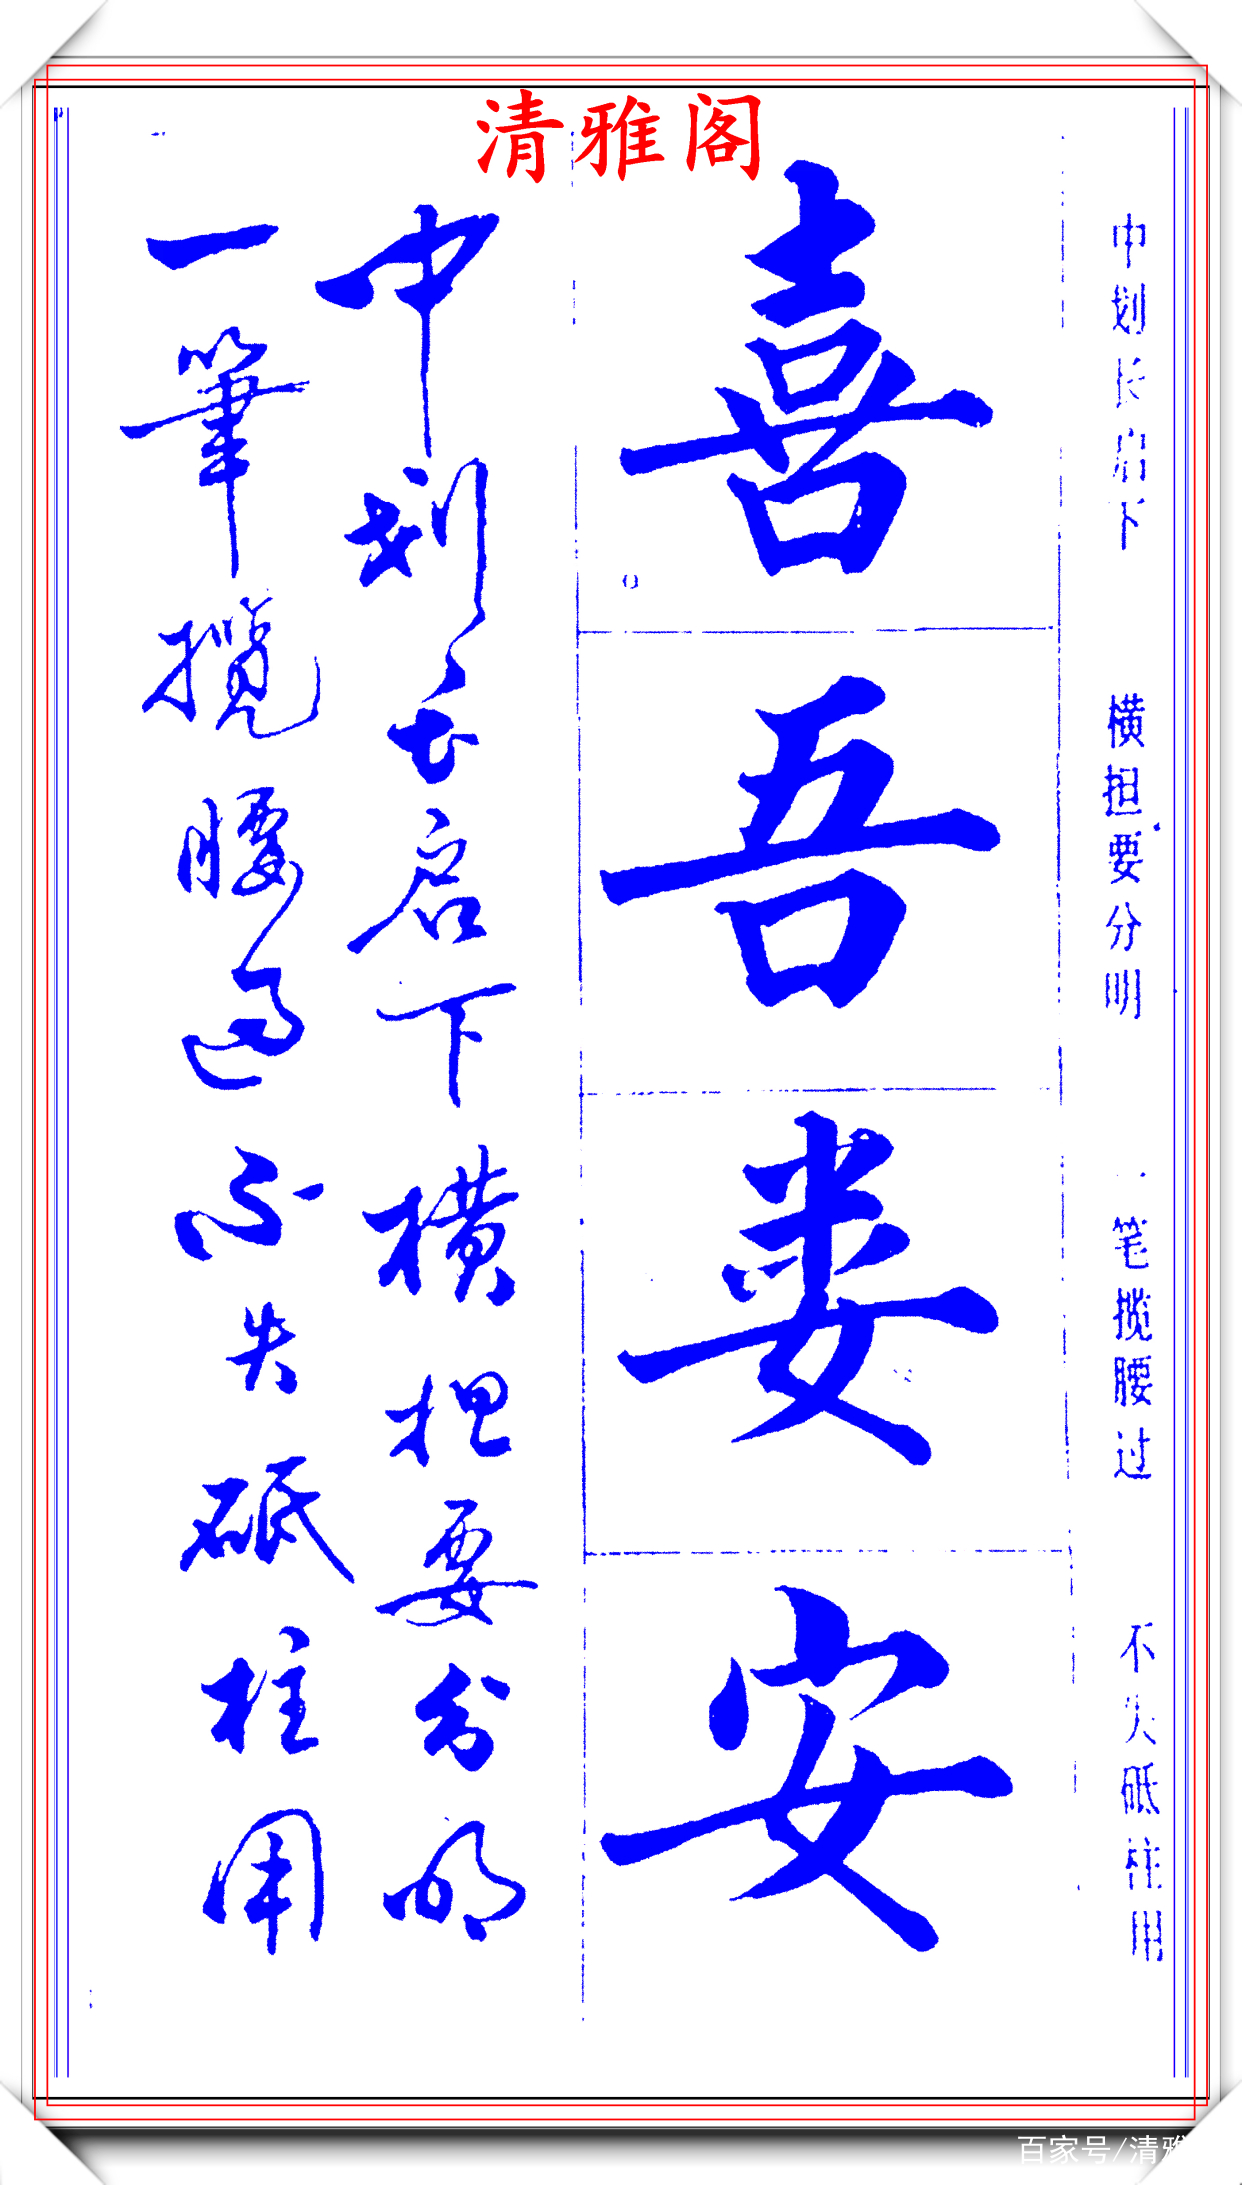 清雅阁
中划长启下 横担要分明 一笔揽腰过 不失砥柱用
喜吾娄安
中划长启下横担要分明
一筆攬腰过不失砥柱用
百家号/清雅